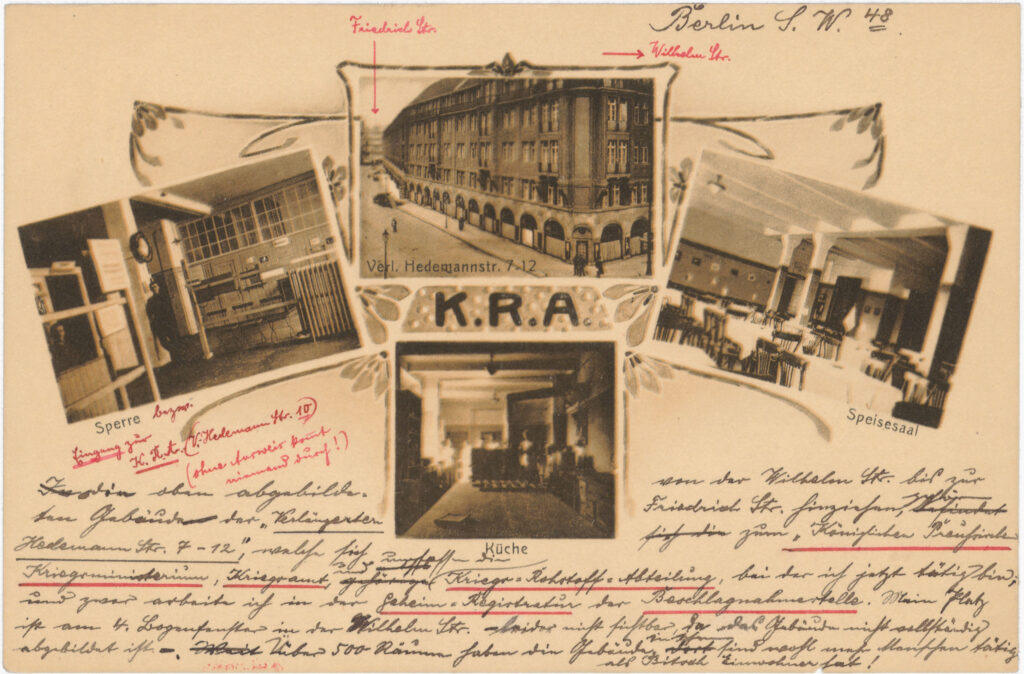 Berlin S. W. 48
Friedrich Str.
Wilhelm Str.
Verl. Hedemannstr. 7-12
K.R.A.
Sperre bezw.
Eingang zur
K. R. A. (V. Hedemann Str. 10)
(ohne Ausweis kommt
niemand durch!)
Speisesaal
Küche
In den oben abgebilde-
ten Gebäude der „Verlängerten
Hedemann Str. 7-12", welche sich
von der Wilhelm Str. bis zur
Friedrich Str. hinziehen, befindet
sich die zum „Königlichen Preussischen
Kriegsministerium, Kriegsamt, gehörige Kriegs-Rohstoff-Abteilung, bei der ich jetzt tätig bin,
und zwar arbeite ich in der Geheim-Registratur der Beschlagnahmestelle. Mein Platz
ist am 4. Bogenfenster in der Wilhelm Str. leider nicht sichtbar, da das Gebäude nicht vollständig
abgebildet ist. Über 500 Räume haben die Gebäude, sind wohl mehr Menschen tätig
als Bitsch Einwohner hat!